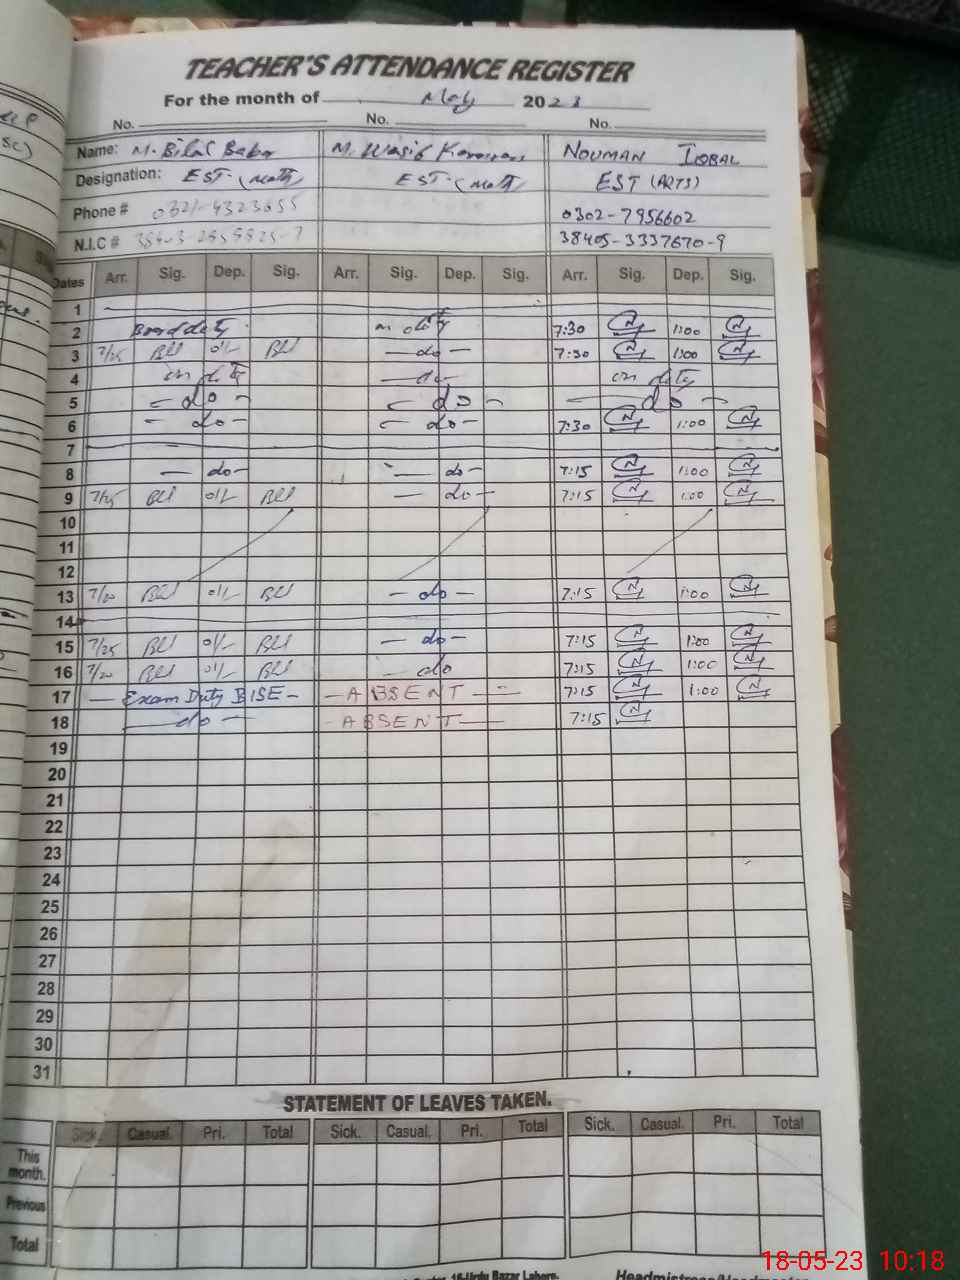 TEACHER'S ATTENDANCE REGISTER
For the month of May 2023
No. No. No.
Name: M. Bilal Babar M. Wasif NOUMAN IQBAL
Designation: EST (Math) EST (Math) EST (ARTS)
Phone # 0302-7956602
N.I.C # 38405-3337670-9
Dates Arr. Sig. Dep. Sig. Arr. Sig. Dep. Sig. Arr. Sig. Dep. Sig.
1
2 Board duty on duty 7:30 1:00
3 7/25 — do — 7:30 1:00
4 on duty — do — on duty
5 — do — — do — — do —
6 — do — — do — 7:30 1:00
7
8 — do — — do — 7:15 1:00
9 7/25 — do — 7:15 1:00
10
11
12
13 7/20 — do — 7:15 1:00
14
15 7/25 — do — 7:15 1:00
16 7/20 — do 7:15 1:00
17 — Exam Duty BISE — — ABSENT — 7:15 1:00
18 — do — — ABSENT — 7:15
19
20
21
22
23
24
25
26
27
28
29
30
31
STATEMENT OF LEAVES TAKEN.
Sick. Casual. Pri. Total Sick. Casual. Pri. Total Sick. Casual. Pri. Total
This month.
Previous
Total
16-Urdu Bazar Lahore. Headmistress/Headmaster
18-05-23 10:18